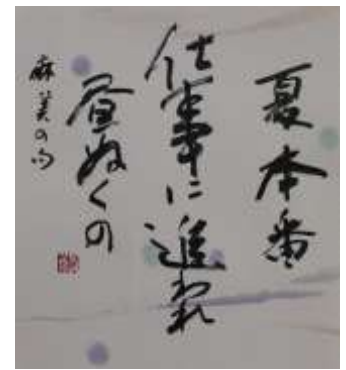 夏本番
仕事に追われ
昼ぬくの
麻美の句